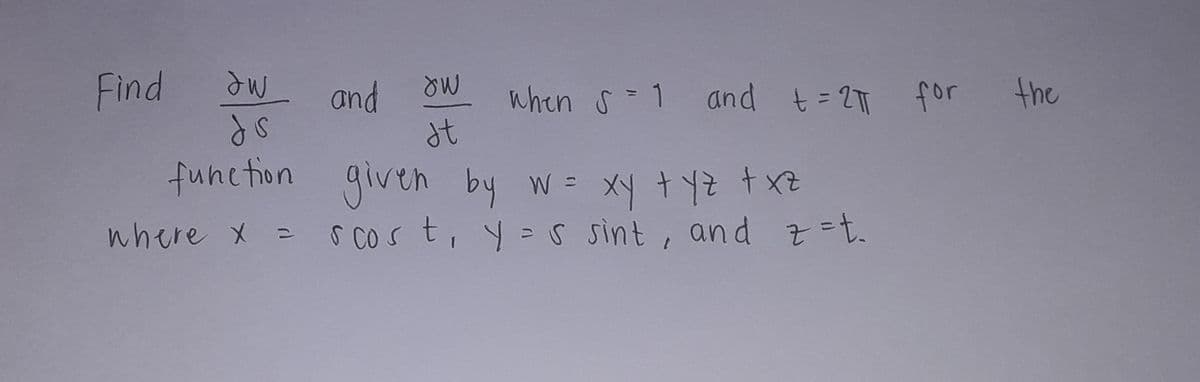 Find ∂w/∂s and ∂w/∂t when s = 1 and t = 2π for the
function given by w = xy + yz + xz
where x = s cos t, y = s sint, and z = t.